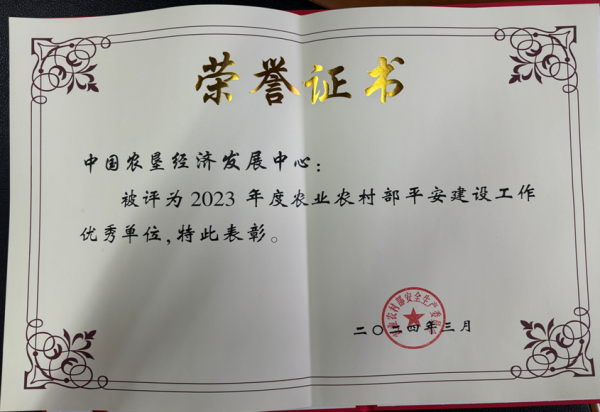 荣誉证书
中国农垦经济发展中心：
被评为2023年度农业农村部平安建设工作
优秀单位，特此表彰。
农业农村部安全生产委员会
二〇二四年三月